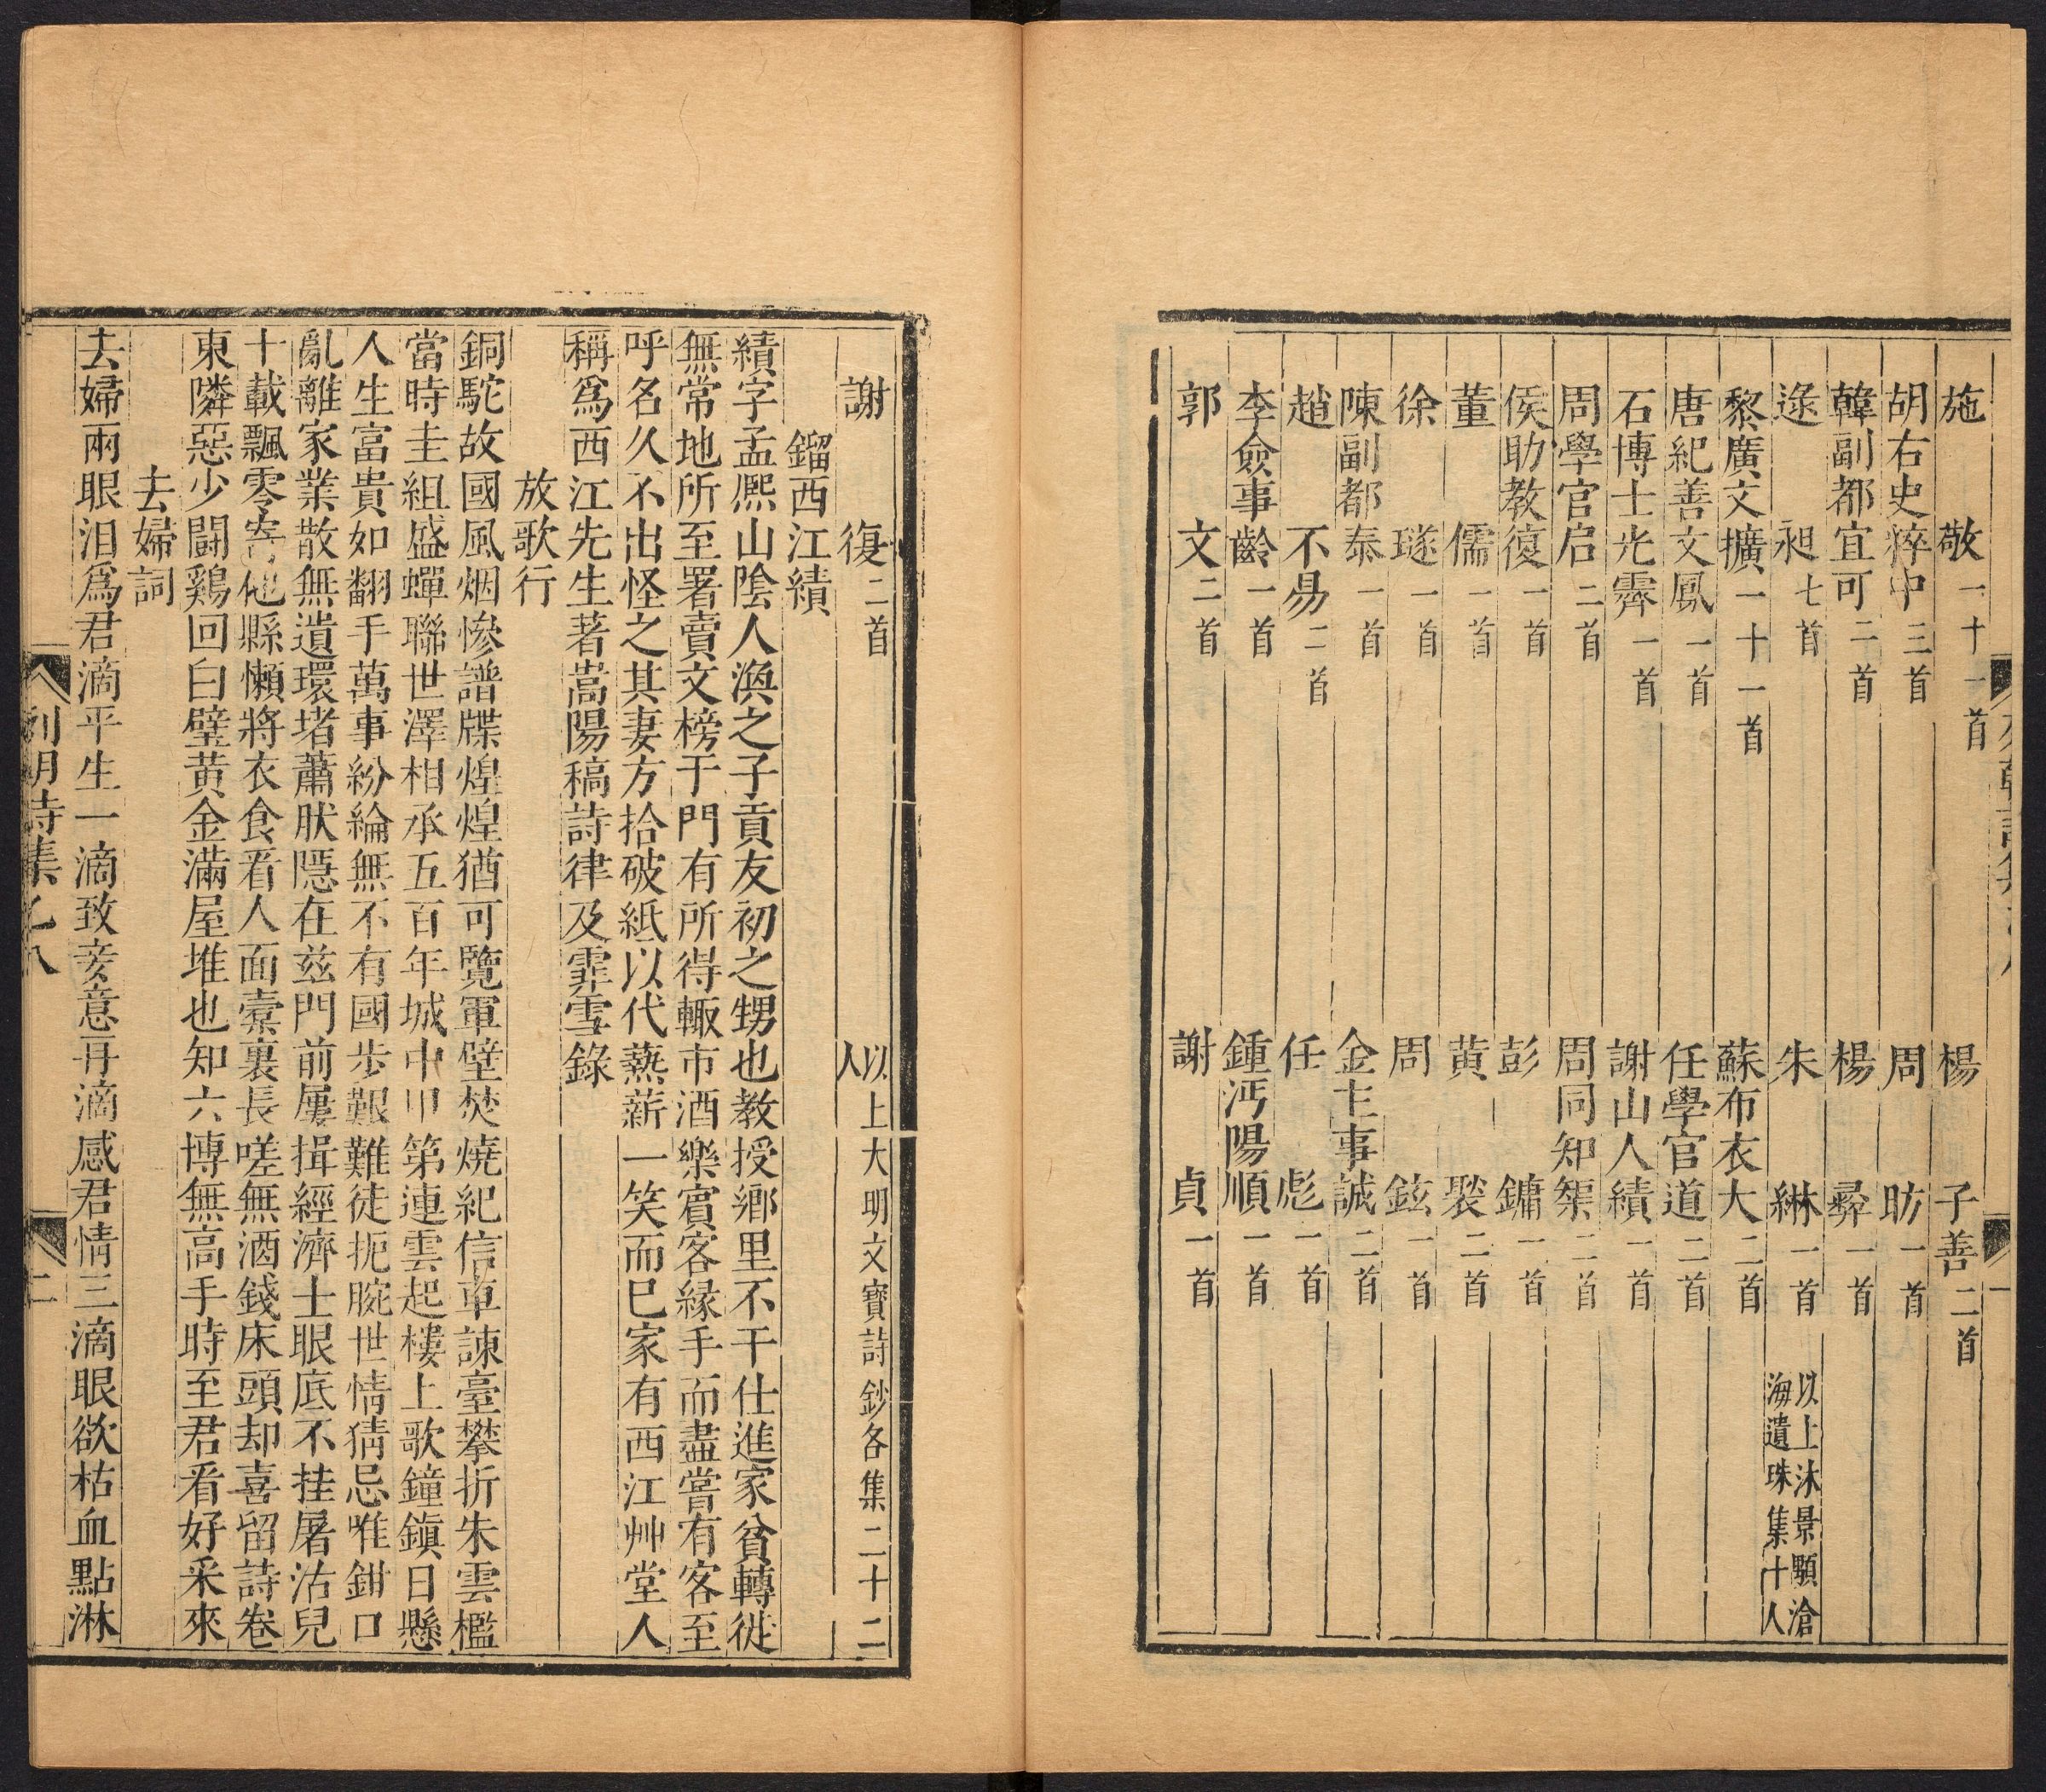 施　敬一十一首　楊子善二首
胡右史粹中三首　周　昉一首
韓副都宜可二首　楊　彝一首
逯　昶七首　朱　綝一首以上沐景顒滄海遺珠集十人
黎廣文擴一十一首　蘇布衣大二首
唐紀善文鳳一首　任學官道二首
石博士光霽一首　謝山人績一首
周學官启二首　周同知榘二首
侯助教復一首　彭　鏞一首
董　儒一首　黃　褧二首
徐　璲一首　周　鉉一首
陳副都泰一首　金主事誠二首
趙　不易二首　任　彪一首
李僉事齡一首　鍾沔陽順一首
郭　文二首　謝　貞一首
謝　復二首　以上大明文寶詩鈔各集二十二人
鎦西江績
績字孟熈山陰人渙之子貢友初之甥也教授鄉里不干仕進家貧轉徙
無常地所至署賣文榜于門有所得輙市酒樂賓客縁手而盡嘗有客至
呼名久不出怪之其妻方拾破紙以代爇薪一笑而巳家有西江艸堂人
稱爲西江先生著嵩陽稿詩律及霏雪錄
放歌行
銅駝故國風烟慘譜牒煌煌猶可覽軍壁焚燒紀信車諫臺攀折朱雲檻
當時圭組盛蟬聯世澤相承五百年城中甲第連雲起樓上歌鐘鎭日懸
人生富貴如翻手萬事紛綸無不有國步艱難徒扼腕世情猜忌唯鉗口
亂離家業散無遺環堵蕭肰隱在兹門前屢揖經濟士眼底不挂屠沽兒
十載飄零寄他縣懶將衣食看人面囊裏長嗟無酒錢床頭却喜留詩卷
東隣惡少鬪鷄回白璧黄金滿屋堆也知六博無高手時至君看好采來
去婦詞
去婦兩眼泪爲君滴平生一滴致妾意再滴感君情三滴眼欲枯血點淋
列朝詩集乙八　二